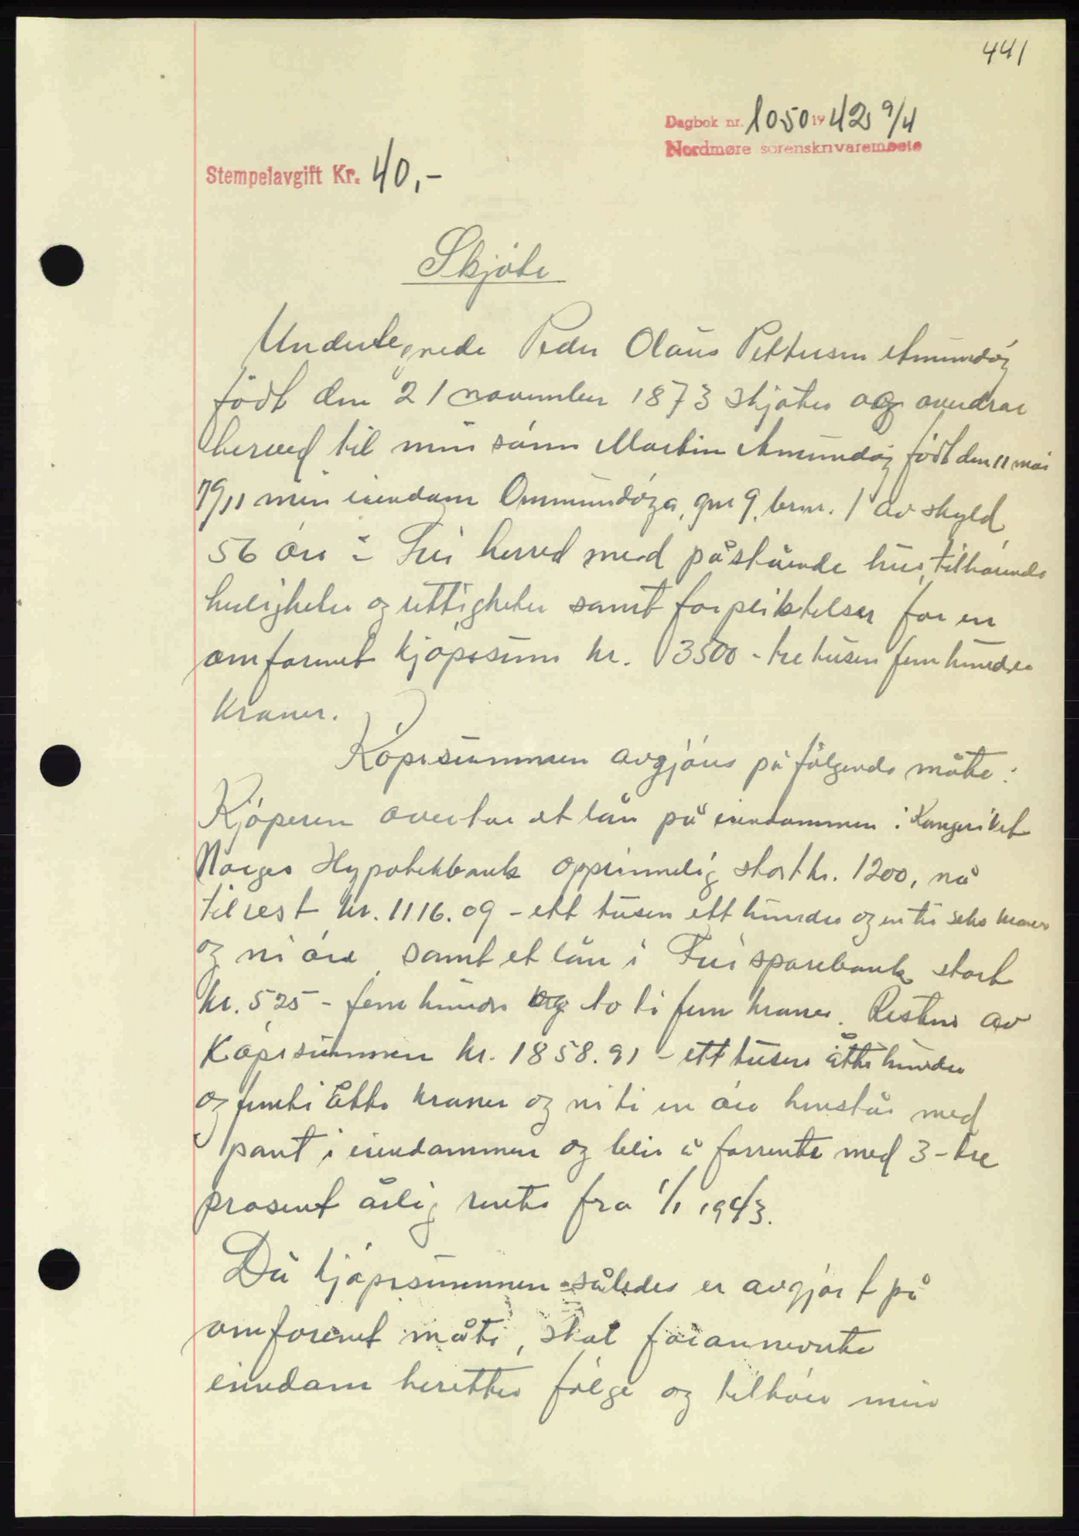 441
Dagbok nr. 1050 19 42 9/4
Nordmøre sorenskrivarembete
Stempelavgift Kr. 40,-
Skjöte
Undertegnede Peder Olaus Pettersen Amundöy
född den 21 november 1873 skjöter og overdrar
herved til min sönn Martin Amundöy född den 11 mai
1911 min eiendom Ommundöya, gnr 9, brnr. 1 av skyld
56 öre i Frei herred med påstående hus, tilhörende
herligheter og rettigheter samt forpliktelser for en
omforenet kjöpesum kr. 3500 - tre tusen fem hundre
kroner.
Köpesummen avgjöres på fölgende måte:
Kjöperen overtar et lån på eiendommen i Kongeriket
Norges Hypotekbank opprinnelig stort kr. 1200, nå
til rest kr. 1116.09 - ett tusen ett hundre og en ti seks kroner
og ni öre samt et lån i Frei sparebank stort
kr. 525 - fem hundre og to ti fem kroner. Resten av
Köpesummen kr. 1858.91 - ett tusen åtte hundre
og femti åtte kroner og ni ti en öre henstår med
pant i eiendommen og blir å forrente med 3 - tre
prosent årlig rente fra 1/1 1943.
Då kjöpesummen således er avgjort på
omforenet måte, skal forannevnte
eiendom heretter fölge og tilhöre min